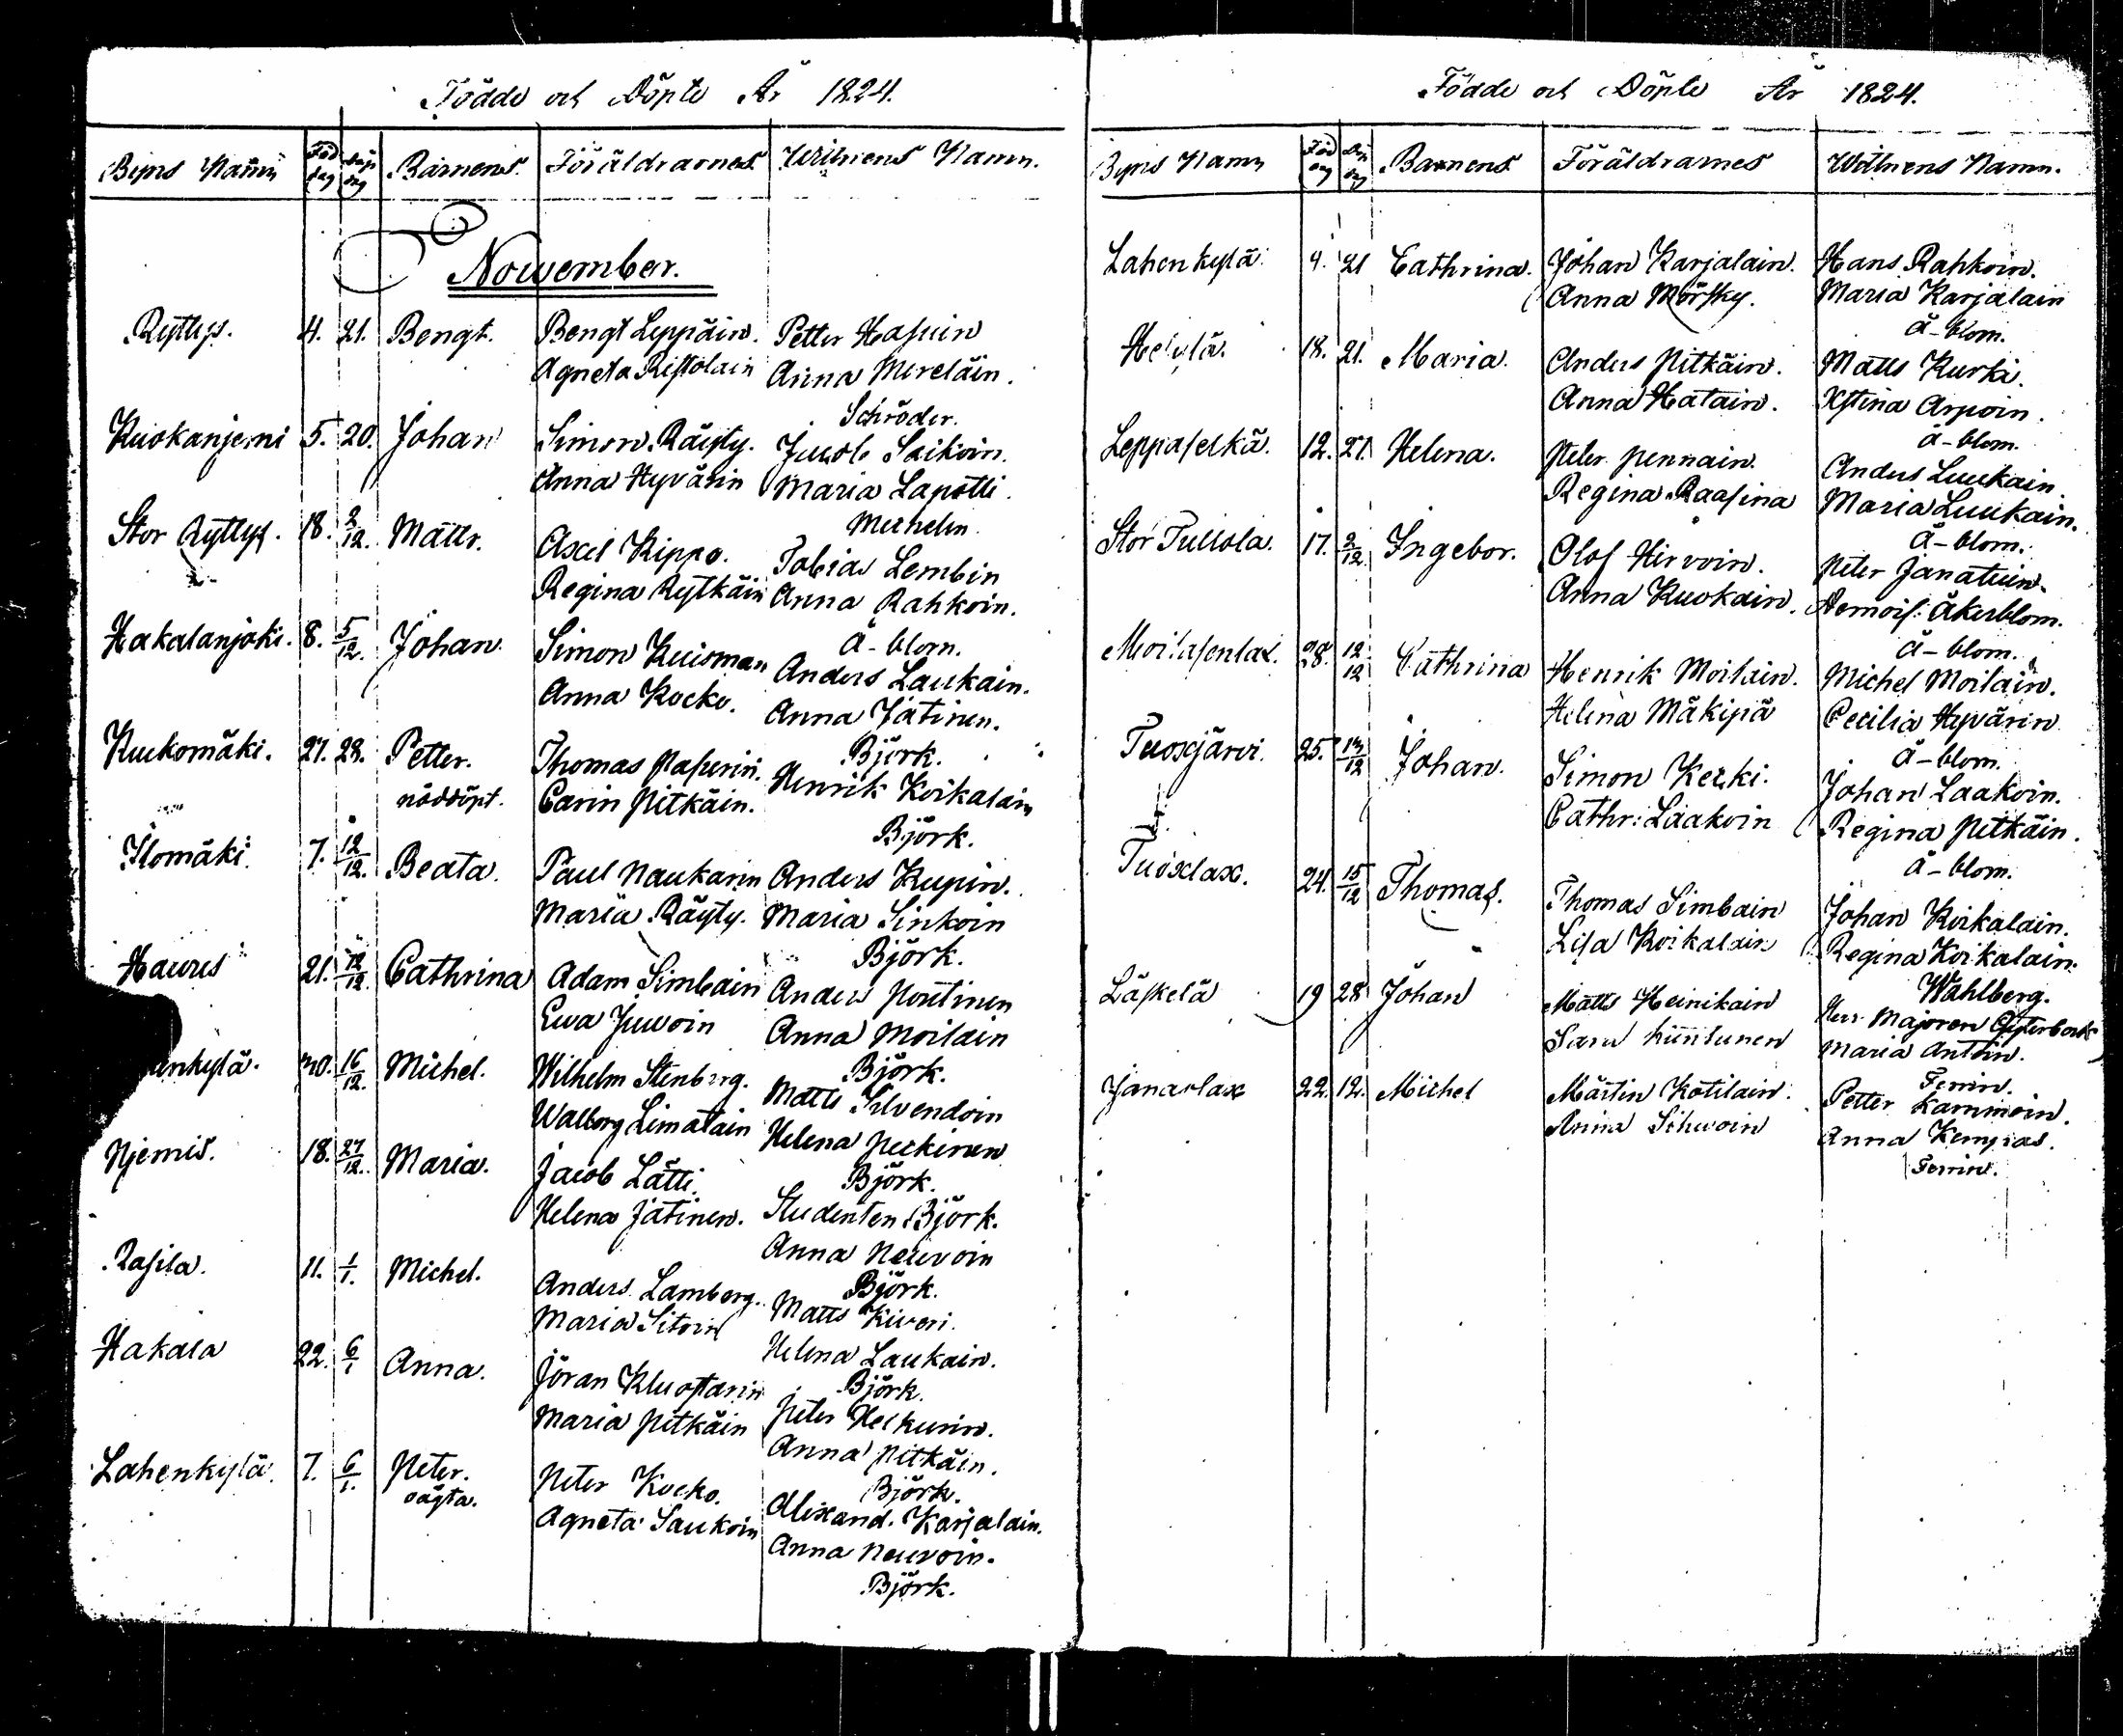 Födde och Döpte År 1824.
Byns Namn Föd dag Döp dag Barnens Föräldrarnes Wittnens Namn.
Nowember.
Ryttys. 4. 21. Bengt. Bengt Leppäin. Petter Hapuin
Agneta Ristolain Anna Mereläin.
Schröder.
Kuokanjemi 5. 20. Johan Simon Räysty. Jacob Saikoin.
Anna Hyvärin Maria Lapotti.
Michelin.
Stor Ryttys. 18. 2/12. Matts. Axel Kippo. Tobias Lembin
Regina Rytkäin Anna Rahkoin.
Å-blom.
Hakalanjoki. 8. 5/12. Johan. Simon Kuisman Anders Laukain.
Anna Kocko. Anna Jätinen.
Björk.
Kuukomäki. 27. 28. Petter. Thomas Paperin. Henrik Koikalain
nöddöpt. Carin Pitkäin.
Björk.
Ilomäki. 7. 12/12. Beata. Paul Naukarin Anders Kupin.
Maria Räysty. Maria Sinkoin
Björk.
Hawus 21. 12/12. Cathrina Adam Simbain Anders Pontinen
Ewa Juwoin Anna Moilain
Björk.
enkylä. 30. 16/12. Michel. Wilhelm Stenberg. Matts Silvendoin
Walborg Limatain Helena Peckinen
Björk.
Njemis. 18. 27/12. Maria. Jacob Lätti. Studenten Björk.
Helena Jätinen. Anna Neuvoin
Björk.
Rasila. 11. 1/1. Michel. Anders Lamberg. Matts Kiveri.
Maria Sitoin Helena Laukain.
Björk.
Hakala 22. 6/1 Anna. Jöran Kluostarin Peter Heikurin.
Maria Pitkäin Anna Pitkäin.
Björk.
Lahenkylä. 7. 6/1. Peter. Peter Kocko. Alexand. Karjalain.
oägta. Agneta Saukoin Anna Neuvoin.
Björk.
Födde och Döpte År 1824.
Byns Namn Föd dag Döp dag Barnens Föräldrarnes Wittnens Namn.
Lahenkylä. 4. 21 Cathrina. Johan Karjalain. Hans Rahkoin.
Anna Mörsky. Maria Karjalain
Å-blom.
Helylä. 18. 21. Maria. Anders Pitkäin. Matts Kurki.
Anna Hatain. Xstina Arpoin.
Å-blom.
Leppäselkä. 12. 21. Helena. Peter Pennain. Anders Luukain.
Regina Raasina Maria Luukain.
Å-blom.
Stor Tuliola. 17. 2/12. Ingebor. Olof Hirvoin. Peter Janatuin.
Anna Kuokain. Demois: Åkerblom.
Å-blom.
Moilasenlax. 28. 12/12 Cathrina Henrik Moilain. Michel Moilain.
Helena Mäkipä Cecilia Hyvärin
Å-blom.
Tuoxjärvi. 25. 13/12 Johan. Simon Kerki. Johan Laakoin.
Cathr: Laakoin Regina Pitkäin.
Å-blom.
Tuoxlax. 24. 15/12 Thomas. Thomas Simbain Johan Koikalain.
Lisa Koikalain Regina Koikalain.
Wahlberg.
Läskelä 19 28 Johan Matts Heinikain Herr Majoren
Sara Hiintunen Maria Anttin.
Fenin.
Janaslax 22. 12. Michel Mårtin Kotilain. Petter Kammoin.
Anna Sihvoin Anna Kempas.
Fenin.